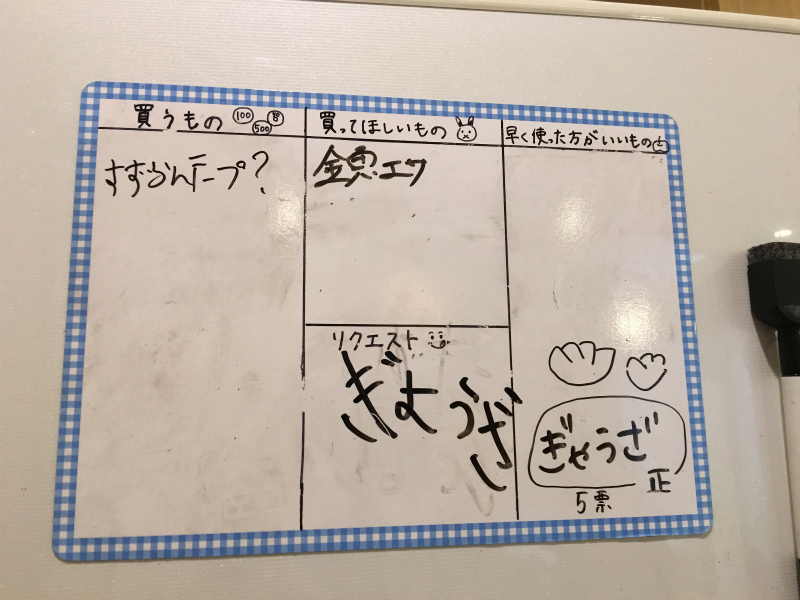 買うもの
100
500
すずらんテープ?
買ってほしいもの
金魚.エサ
リクエスト
ぎょうざ
早く使った方がいいもの
ぎゃうざ
正
5票